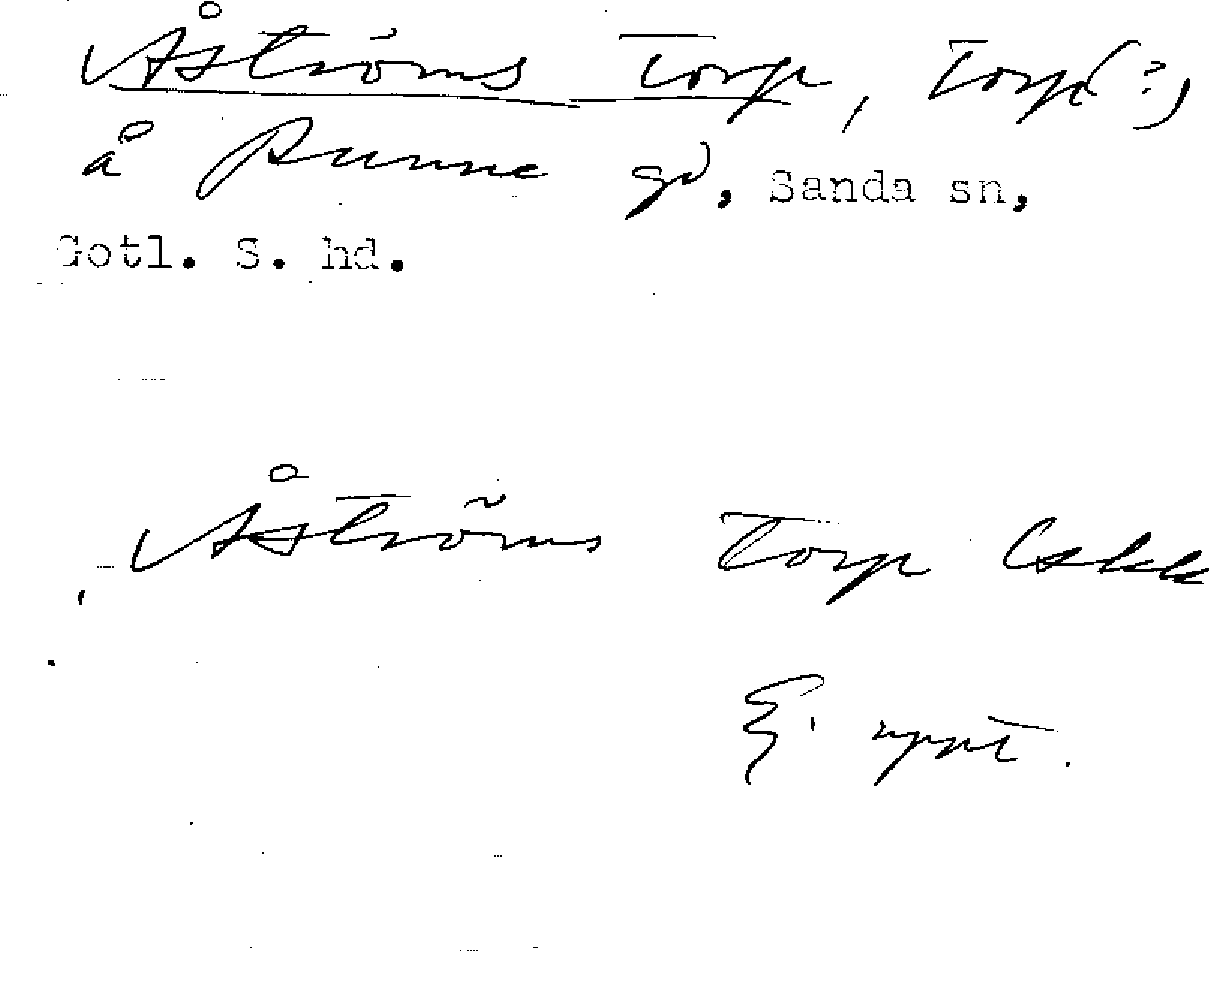 Åströms Torp, Torp(?),
å Runne gd, Sanda sn,
Gotl. S. hd.
Åströms Torp Eskk
Ej uppt.